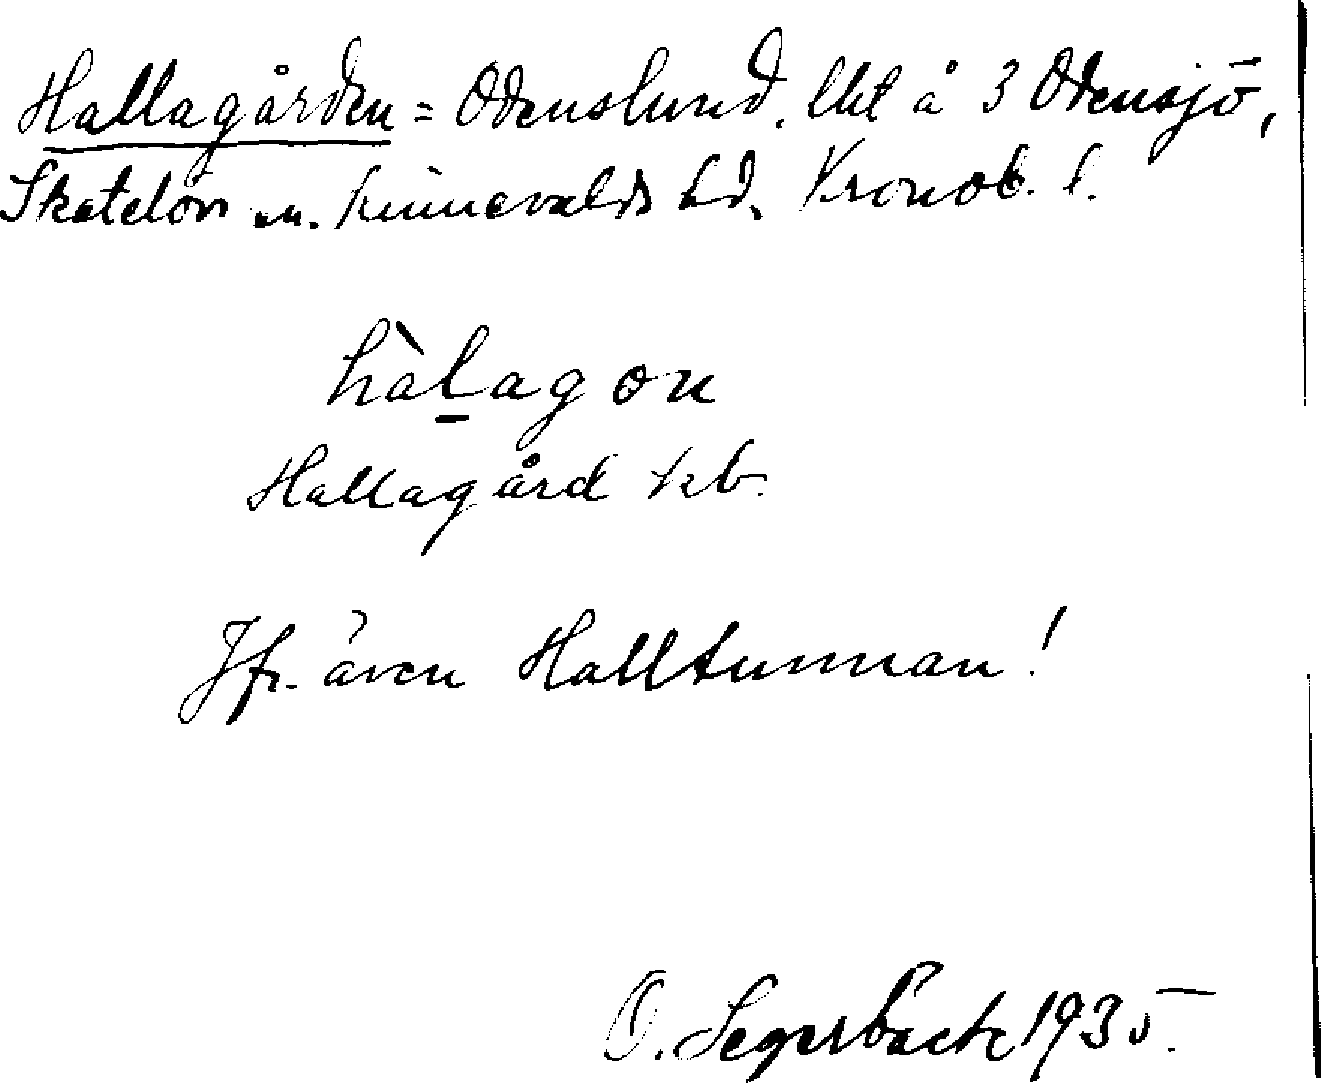 Hallagården = Odenslund. lht å 3 Odensjö,
Skatelöv sn. Kinnevalds hd. Kronob. l.
hàlagon
Hallagård kb.
Jfr. även Halltunnan!
O. Segerbäck 1935.